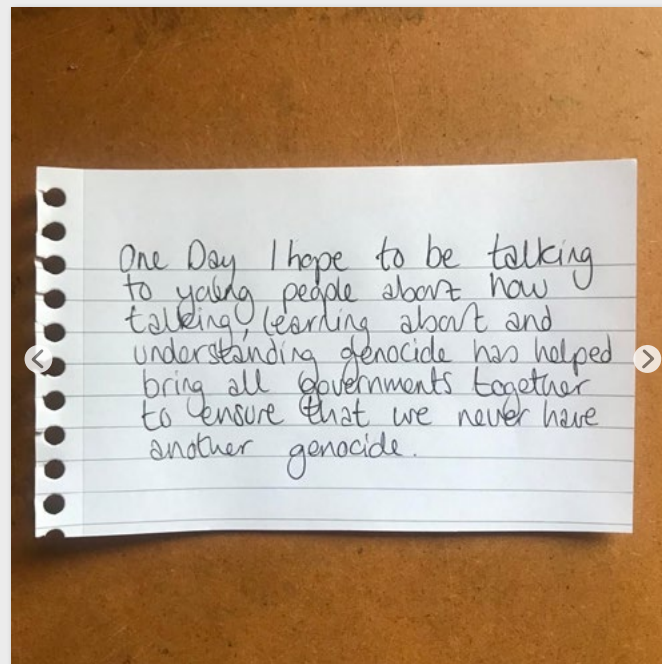 One Day I hope to be talking
to young people about how
talking, learning about and
understanding genocide has helped
bring all governments together
to ensure that we never have
another genocide.